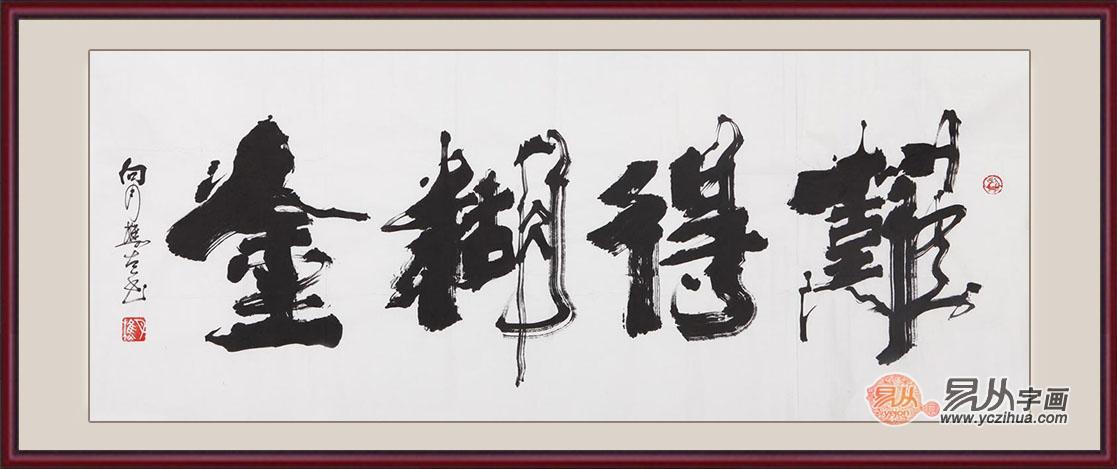 難得糊塗
向月樵
易从
易从字画
www.yczihua.com